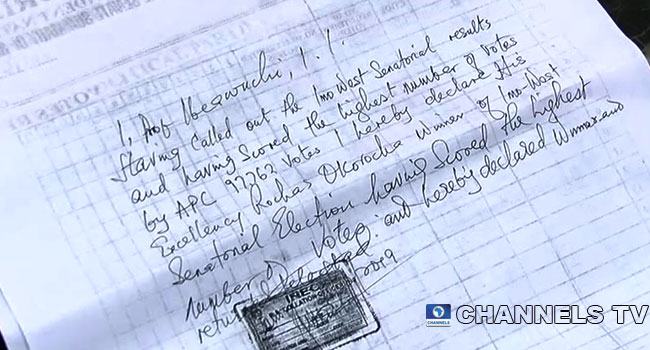 I, Prof Ibeawuchi, I. I.
Having Called out the Imo West Senatorial results
and having Scored the highest number of Votes
by APC 97762 Votes I hereby declare His
Excellency Rochas Okorocha Winner of Imo-West
Senatorial Election having Scored the highest
number of Votes. and hereby declared Winner and
returned
2019
INEC
CHANNELS
CHANNELS TV